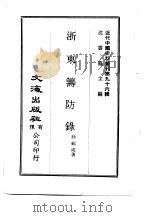 近代中國史料叢刊第九十六輯
沈雲龍主編
浙東籌防錄
薛福成著
文海出版社有限
公司印行